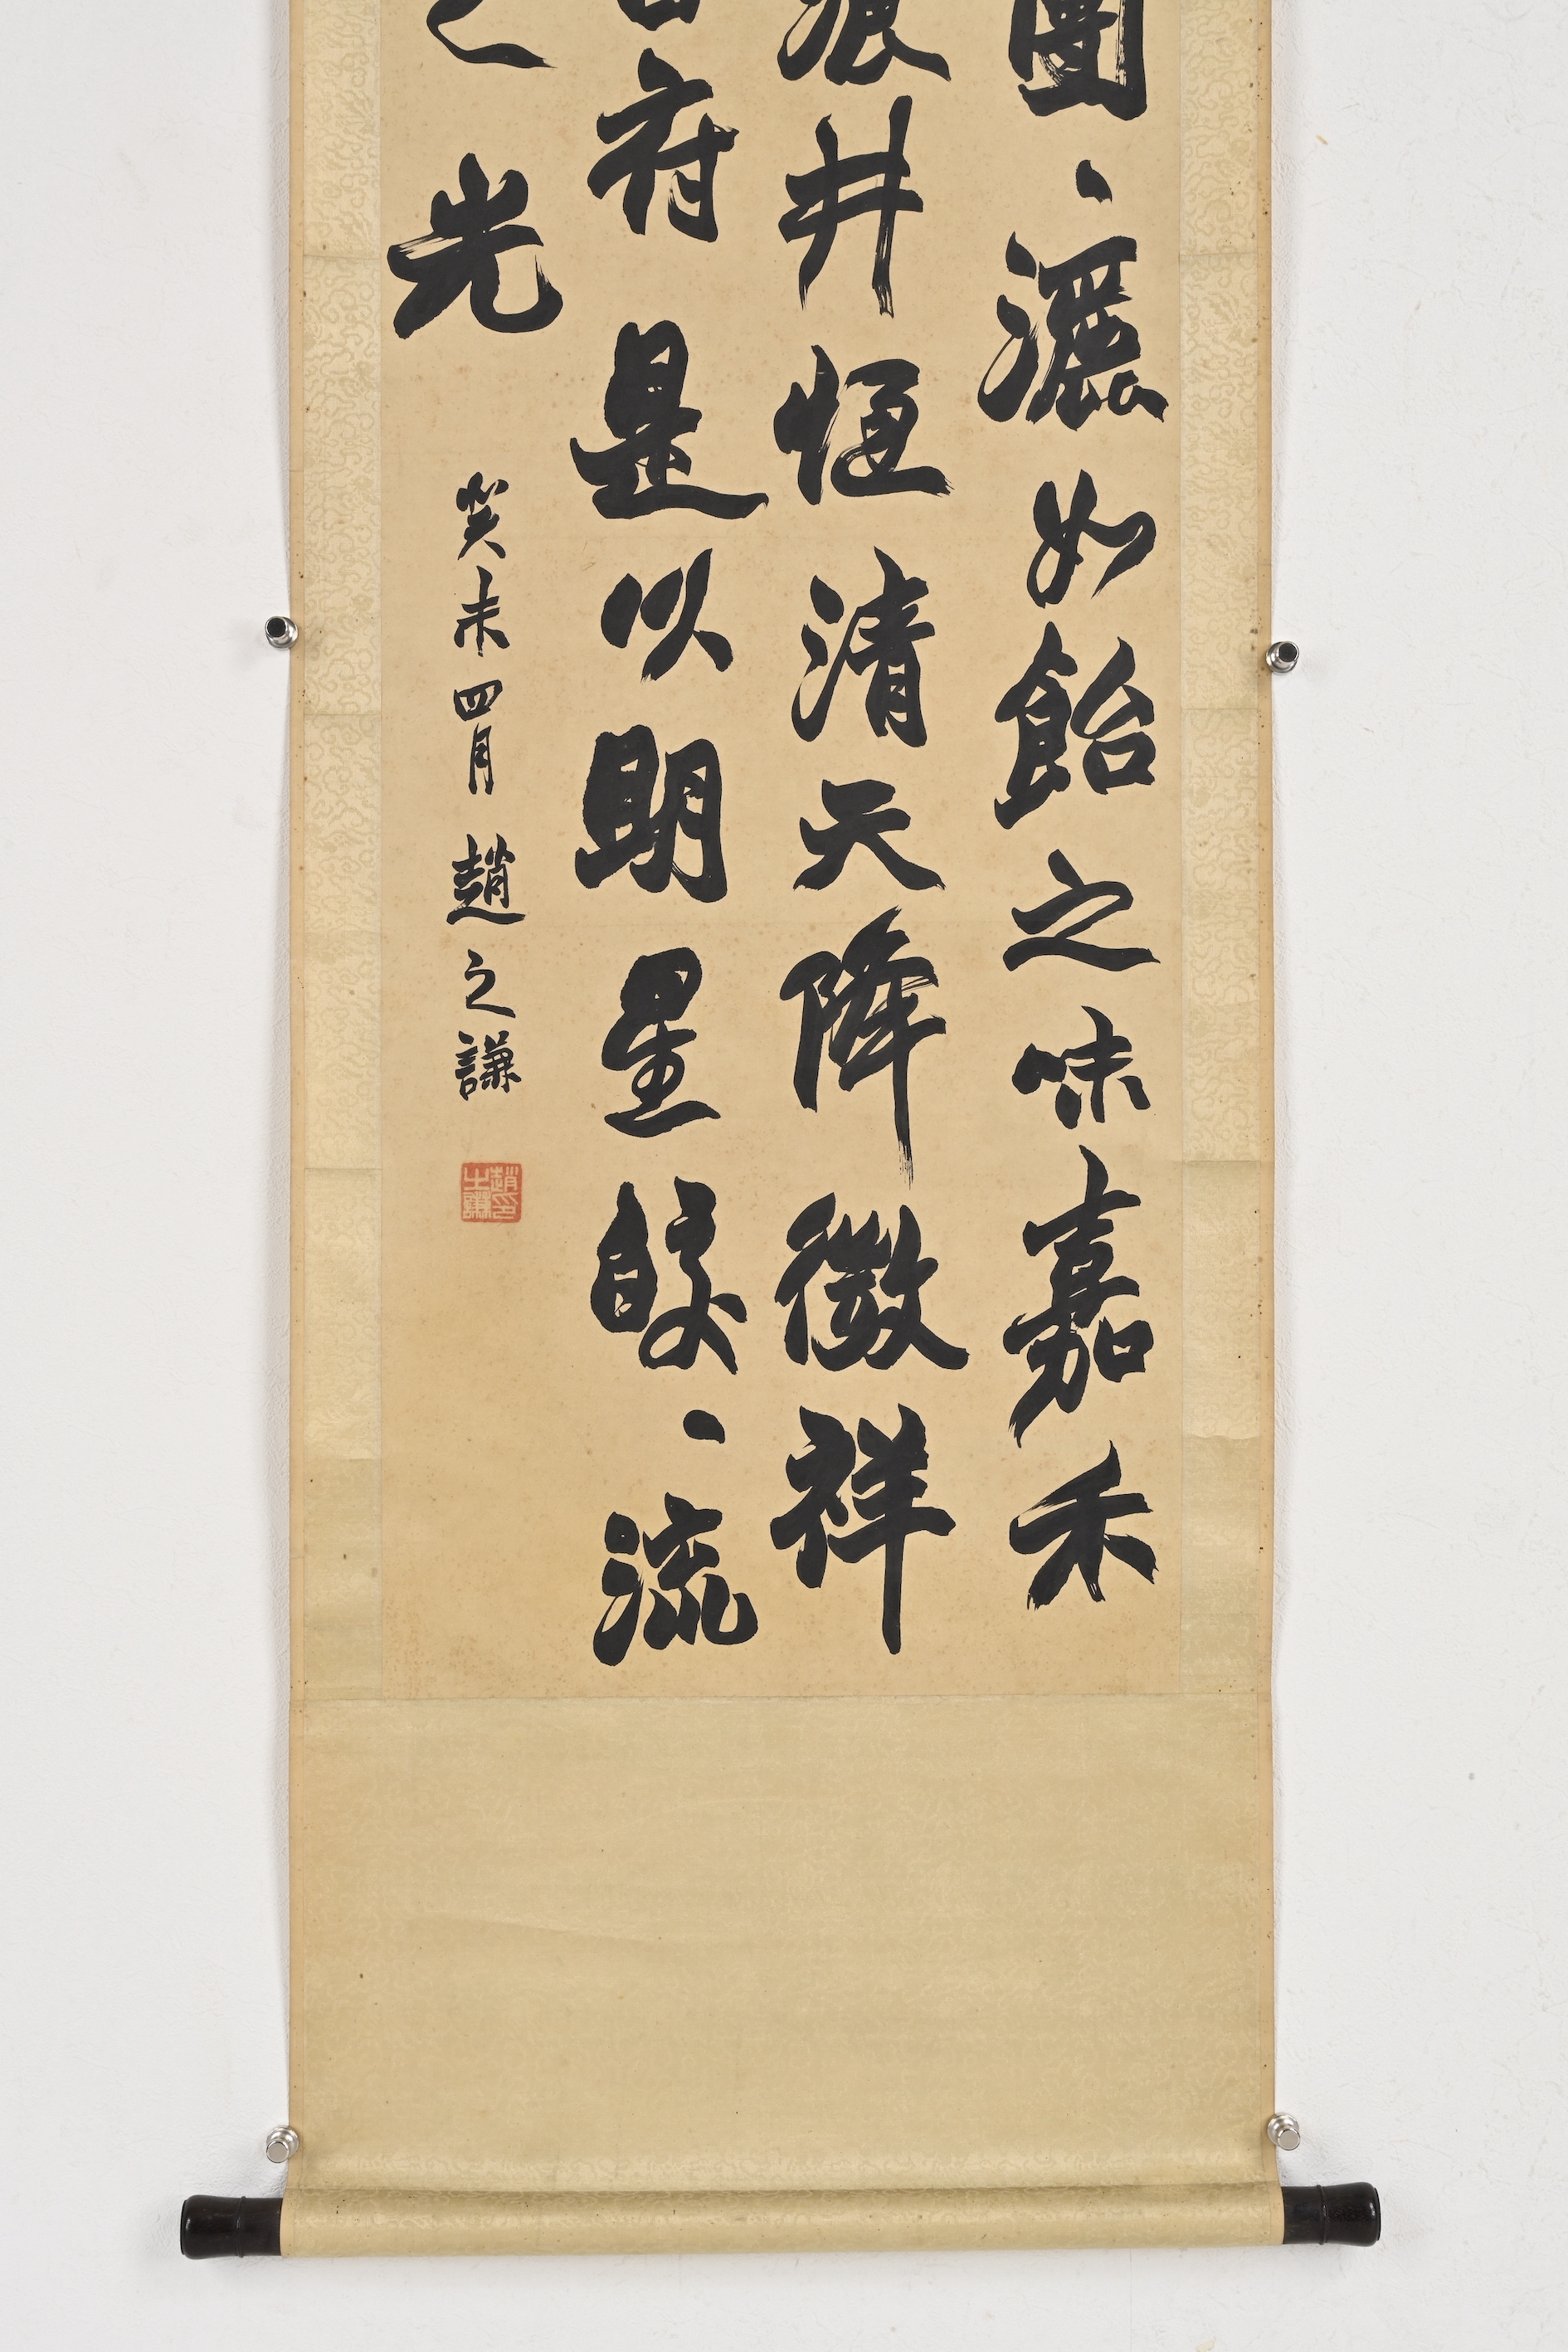 團、灑如飴之味嘉禾
浪井恆清天降徵祥
府是以明星皎、流
之光
癸未四月趙之謙
趙之謙印